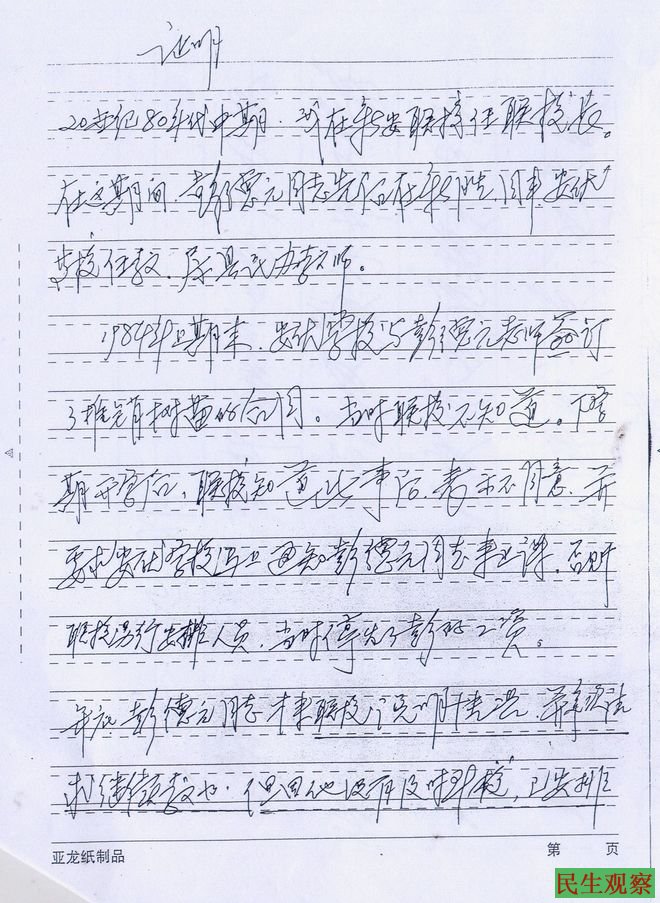 证明
20世纪80年代中期，我在新安联校任联校长。
在这期间，彭德元同志先后在新胜、同丰、安伏
学校任教，属县民办老师。
1984年上期末，安伏学校与彭德元老师签订
了推销树苗的合同。当时联校不知道。下学
期开学后，联校知道此事后，表示不同意，并
要求安伏学校马上通知彭德元同志来上课，否则
联校另行安排人员，当时停发了彭的工资。
年底，彭德元同志来联校说明情况，并
求继续教书，但因他没有及时到校，已安排
亚龙纸制品
第 页
民生观察